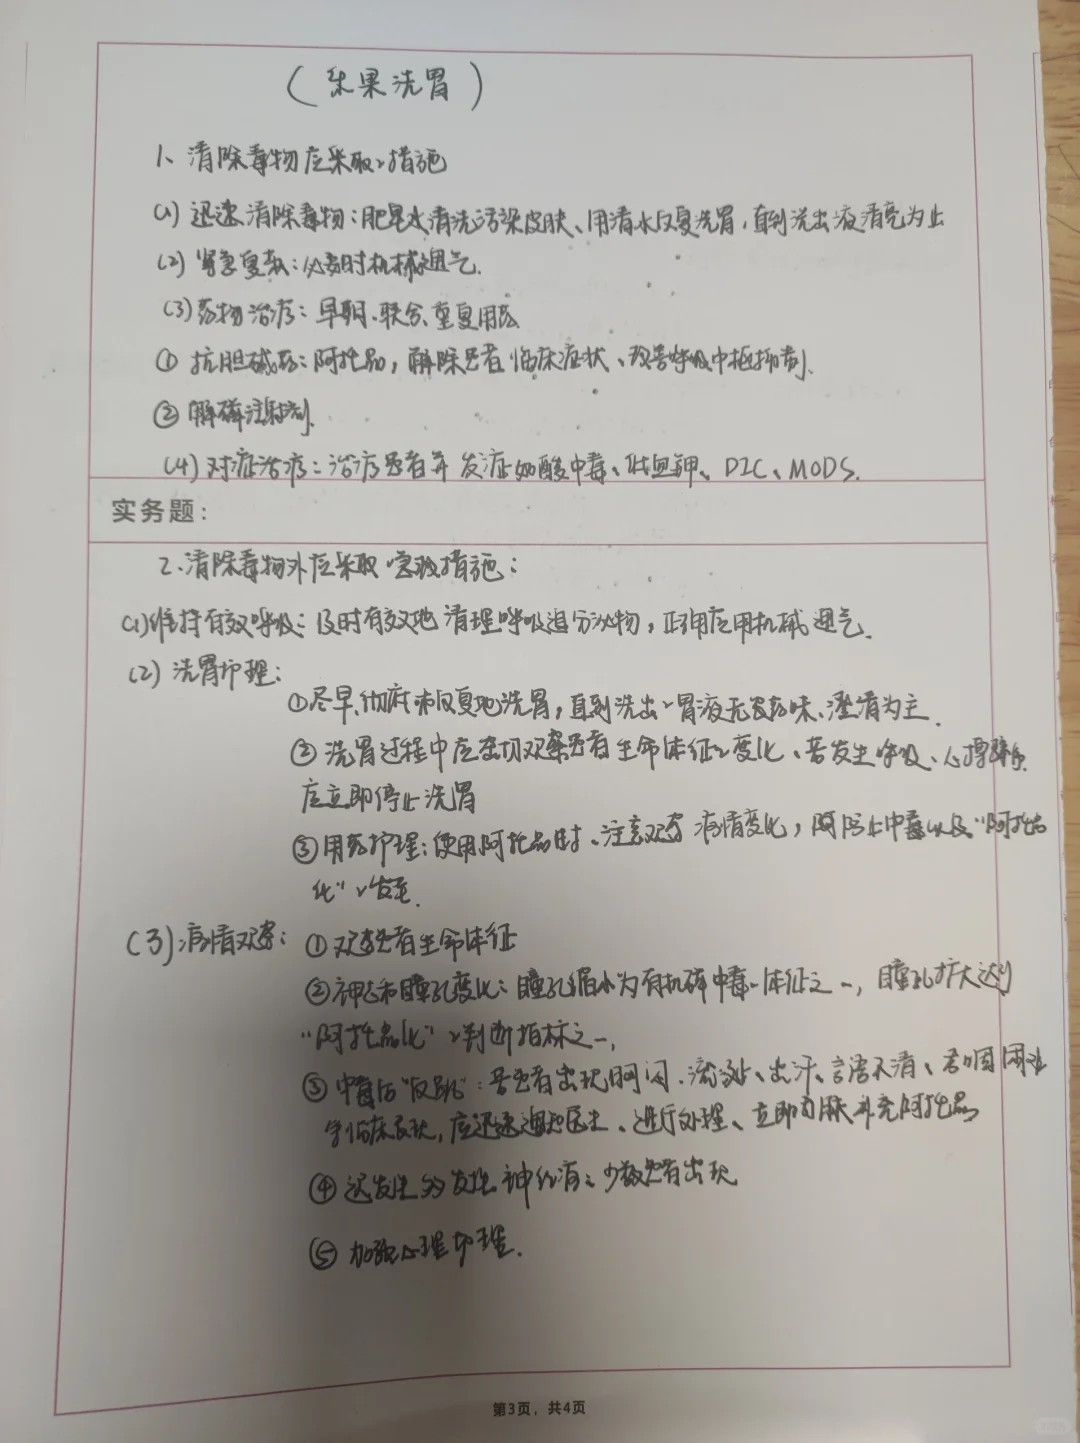 (结果洗胃)
1、清除毒物应采取的措施
(1) 迅速清除毒物：肥皂水清洗污染皮肤、用清水反复洗胃，直到洗出液清亮为止
(2) 紧急复苏：必要时机械通气.
(3) 药物治疗：早期、联合、重复用药
① 抗胆碱药：阿托品，解除患者临床症状、改善呼吸中枢抑制.
② 解磷注射剂.
(4) 对症治疗：治疗患者并发症如酸中毒、低血钾、DIC、MODS.
实务题：
2.清除毒物外应采取急救措施：
(1)维持有效呼吸：及时有效地清理呼吸道分泌物，正确应用机械通气.
(2) 洗胃护理：
①尽早、彻底和反复地洗胃，直到洗出的胃液无农药味、澄清为主.
② 洗胃过程中应密切观察患者生命体征的变化、若发生呼吸、心搏骤停.
应立即停止洗胃
③ 用药护理：使用阿托品时、注意观察病情变化，预防止中毒以及"阿托品
化"的发生.
(3) 病情观察：① 观察患者生命体征
② 神志和瞳孔变化：瞳孔缩小为有机磷中毒体征之一，瞳孔扩大达到
"阿托品化"的判断指标之一，
③ 中毒后"反跳"：若患者出现胸闷、流涎、出汗、言语不清、吞咽困难
等临床表现，应迅速通知医生、进行处理、立即静脉补充阿托品
④ 迟发生多发性神经病：少数患者出现
⑤ 加强心理护理.
第3页，共4页